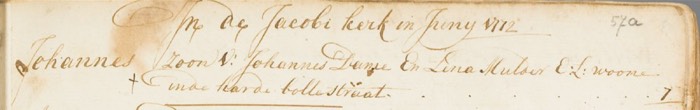 In de Jacobi kerk in Juny 1772
57a
Johannes Zoon V: Johannes Damie En Lina Mulder E: L: woone
+ inde harde bolle straat. . . . . . 7